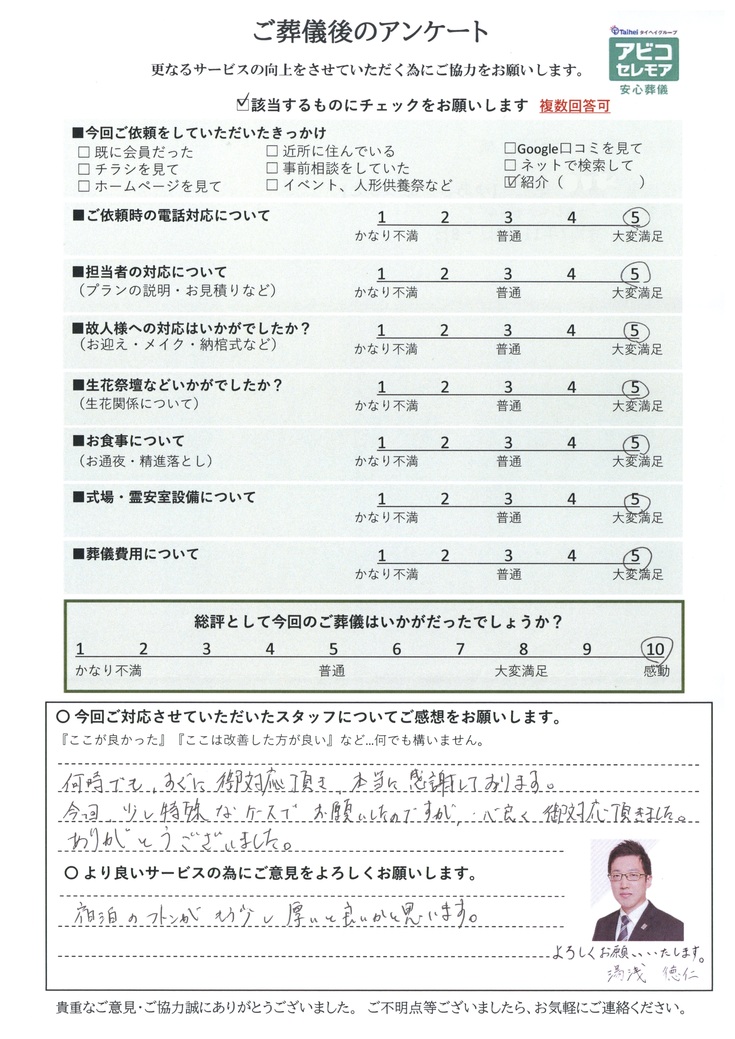 ご葬儀後のアンケート
Taihei タイヘイグループ
アビコ
セレモア
安心葬儀
更なるサービスの向上をさせていただく為にご協力をお願いします。
☑該当するものにチェックをお願いします 複数回答可
■今回ご依頼をしていただいたきっかけ
□ 既に会員だった □ 近所に住んでいる □Google口コミを見て
□ チラシを見て □ 事前相談をしていた □ ネットで検索して
□ ホームページを見て □ イベント、人形供養祭など ☑紹介（ ）
■ご依頼時の電話対応について 1 2 3 4 5
かなり不満 普通 大変満足
■担当者の対応について 1 2 3 4 5
（プランの説明・お見積りなど） かなり不満 普通 大変満足
■故人様への対応はいかがでしたか？ 1 2 3 4 5
（お迎え・メイク・納棺式など） かなり不満 普通 大変満足
■生花祭壇などいかがでしたか？ 1 2 3 4 5
（生花関係について） かなり不満 普通 大変満足
■お食事について 1 2 3 4 5
（お通夜・精進落とし） かなり不満 普通 大変満足
■式場・霊安室設備について 1 2 3 4 5
かなり不満 普通 大変満足
■葬儀費用について 1 2 3 4 5
かなり不満 普通 大変満足
総評として今回のご葬儀はいかがだったでしょうか？
1 2 3 4 5 6 7 8 9 10
かなり不満 普通 大変満足 感動
〇 今回ご対応させていただいたスタッフについてご感想をお願いします。
『ここが良かった』『ここは改善した方が良い』など…何でも構いません。
何時でも、すぐに御対応頂き、本当に感謝しております。
今回、少し特殊なケースでお願いしたのですが、心良く御対応頂きました。
ありがとうございました。
〇 より良いサービスの為にご意見をよろしくお願いします。
宿泊のフトンがもう少し厚いと良いかと思います。
よろしくお願いいたします。
湯浅 徳仁
貴重なご意見・ご協力誠にありがとうございました。 ご不明点等ございましたら、お気軽にご連絡ください。